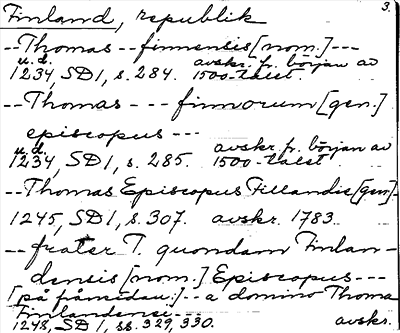 3.
Finland, republik
-- Thomas -- finnensis [nom.] ---
u.d. avskr. fr. början av
1234, SD 1, s. 284. 1500-talet.
-- Thomas --- finnorum [gen.]
episcopus ---
u.d. avskr. fr. början av
1234, SD 1, s. 285. 1500-talet.
-- Thomas Episcopus Fillandie [gen.]
1245, SD 1, s. 307. avskr. 1783.
-- frater T. quondam Finlan-
densis [nom.] Episcopus ---
[på frånsidan:] -- a domino Thoma
Finlandensi ---
1248, SD 1, ss. 329, 330. avskr.